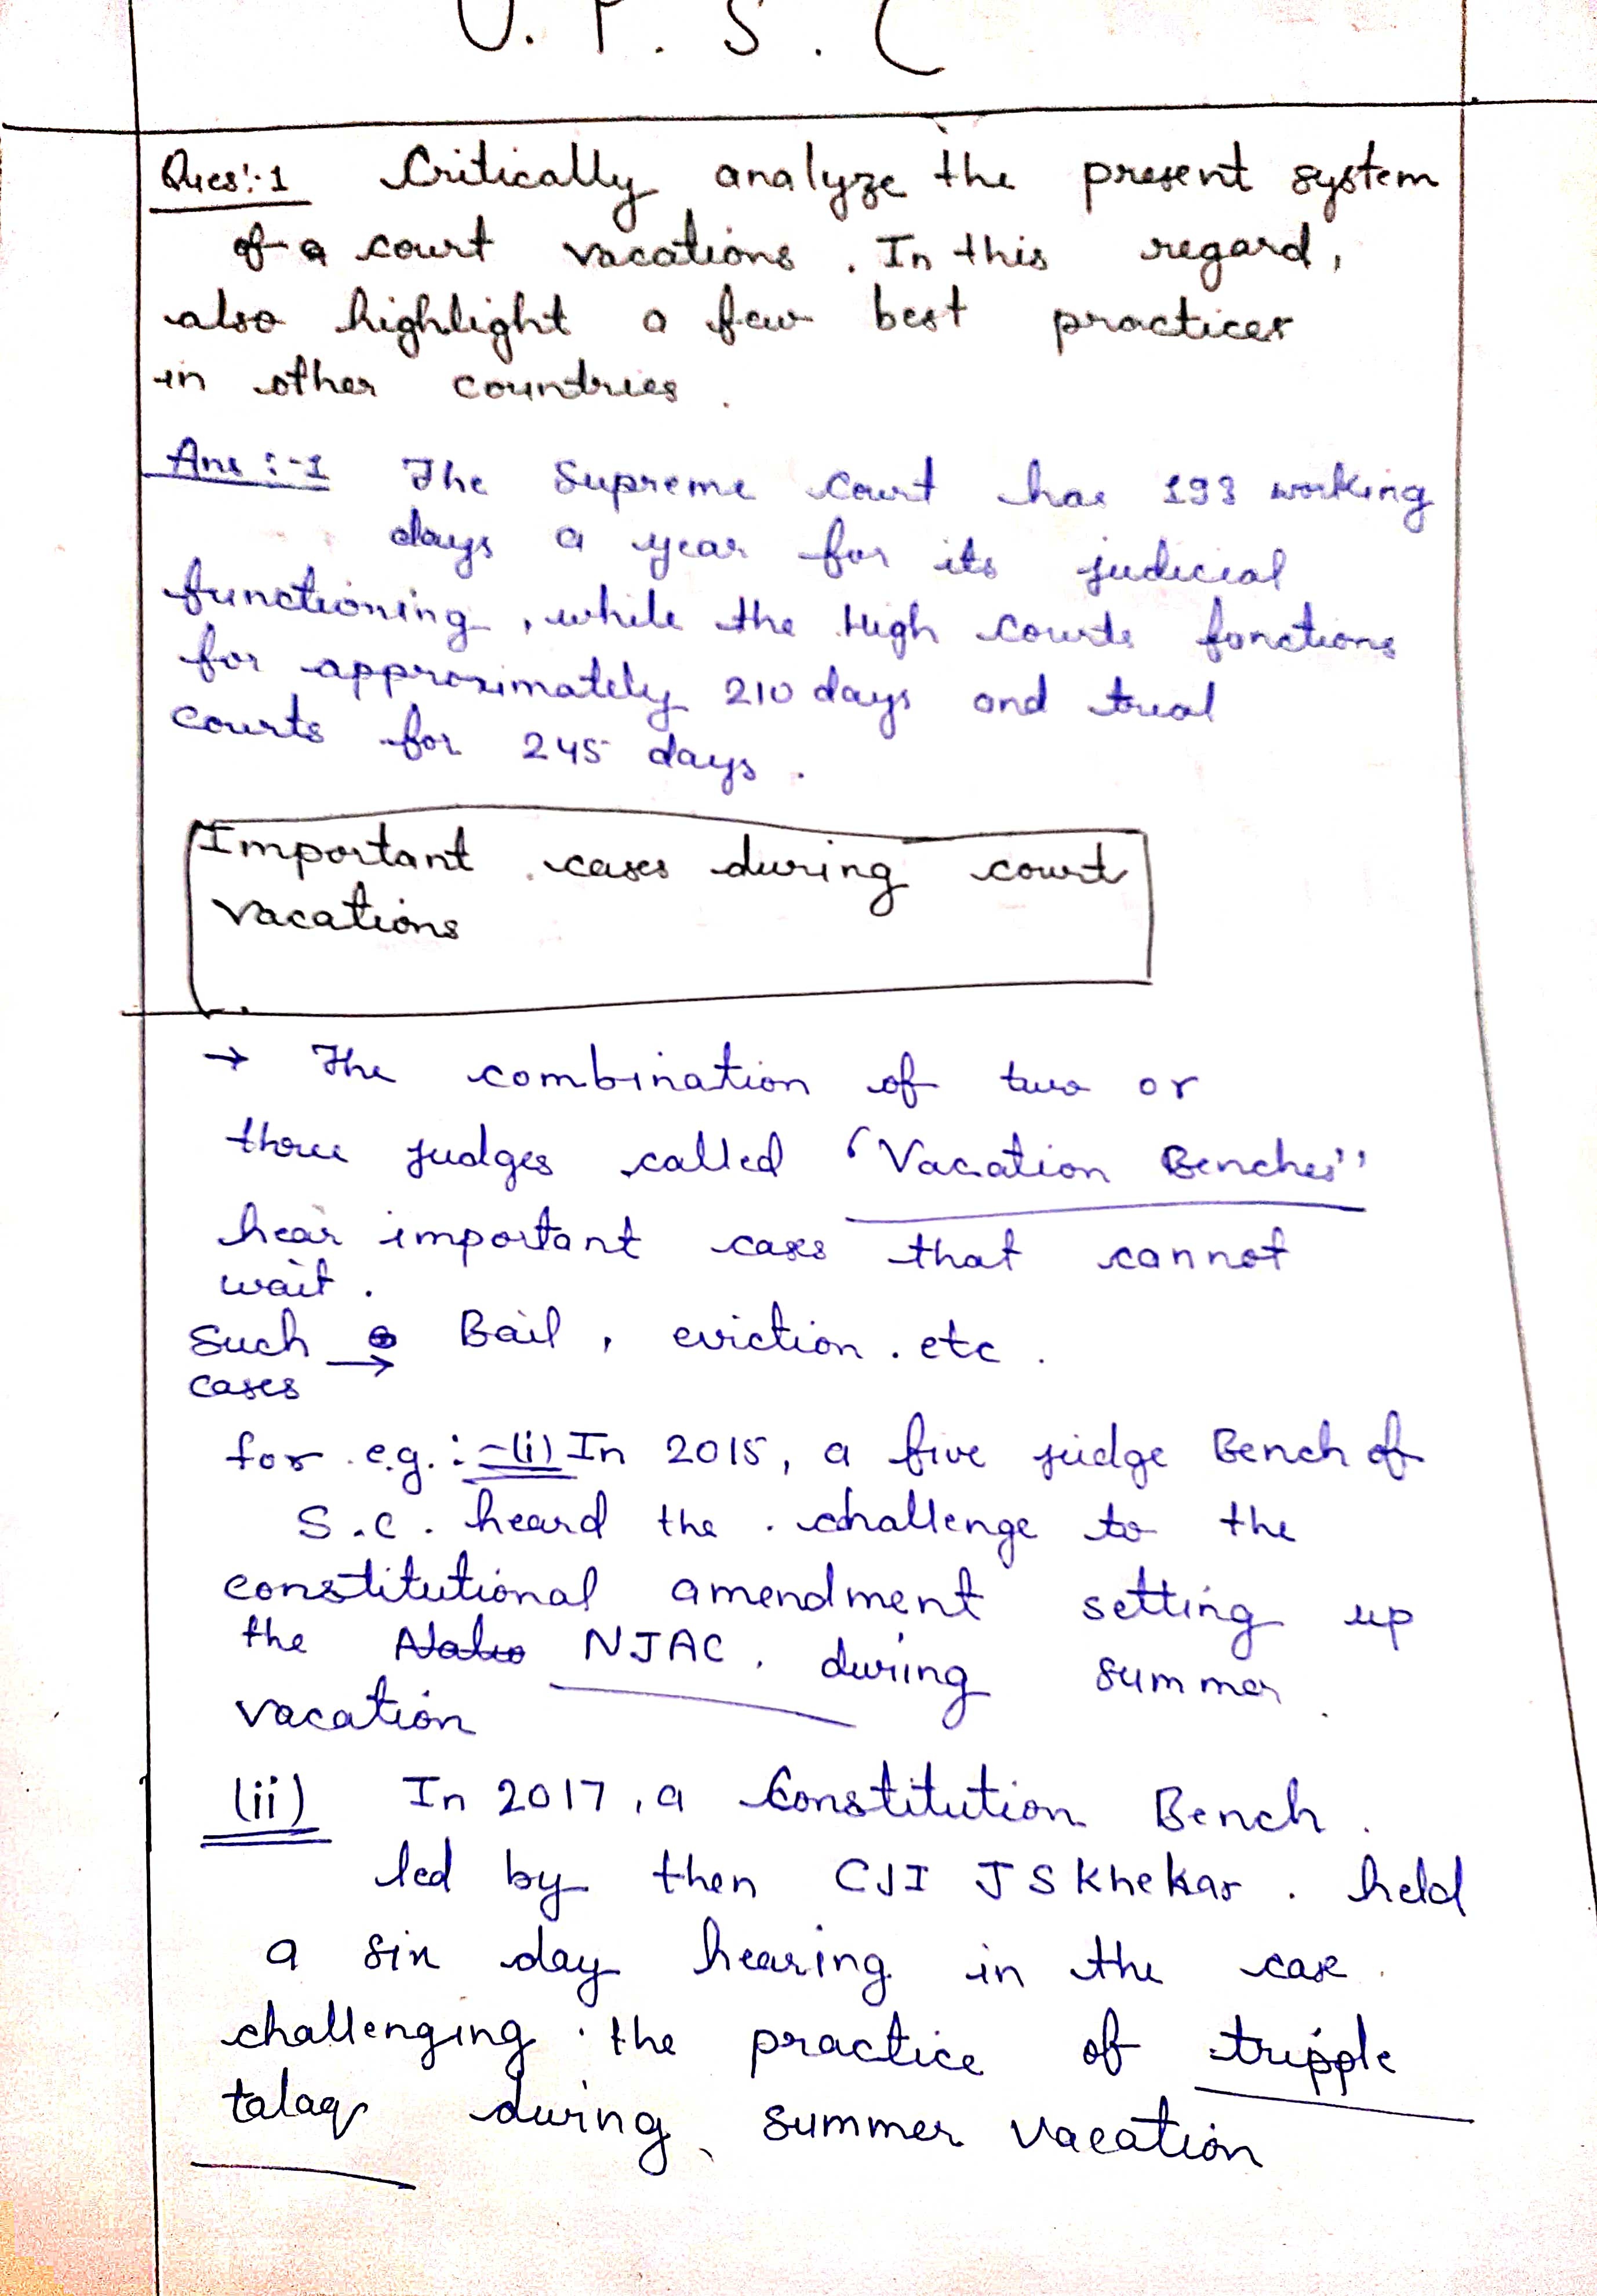 U. P. S. C
Ques:-1 Critically analyze the present system
of a court vacations. In this regard,
also highlight a few best practices
in other countries.
Ans:-1 The Supreme Court has 193 working
days a year for its judicial
functioning, while the High Courts fonctions
for approximately 210 days and trial
courts for 245 days.
Important cases during court
vacations
→ The combination of two or
three judges called "Vacation Benches"
hear important cases that cannot
wait.
Such → Bail, eviction. etc.
cases
for e.g.:-(i) In 2015, a five judge Bench of
S.C. heard the challenge to the
constitutional amendment setting up
the NJAC. during summer
vacation
(ii) In 2017, a Constitution Bench
led by then CJI J S Khekar. held
a six day hearing in the case
challenging the practice of tripple
talaq during summer vacation